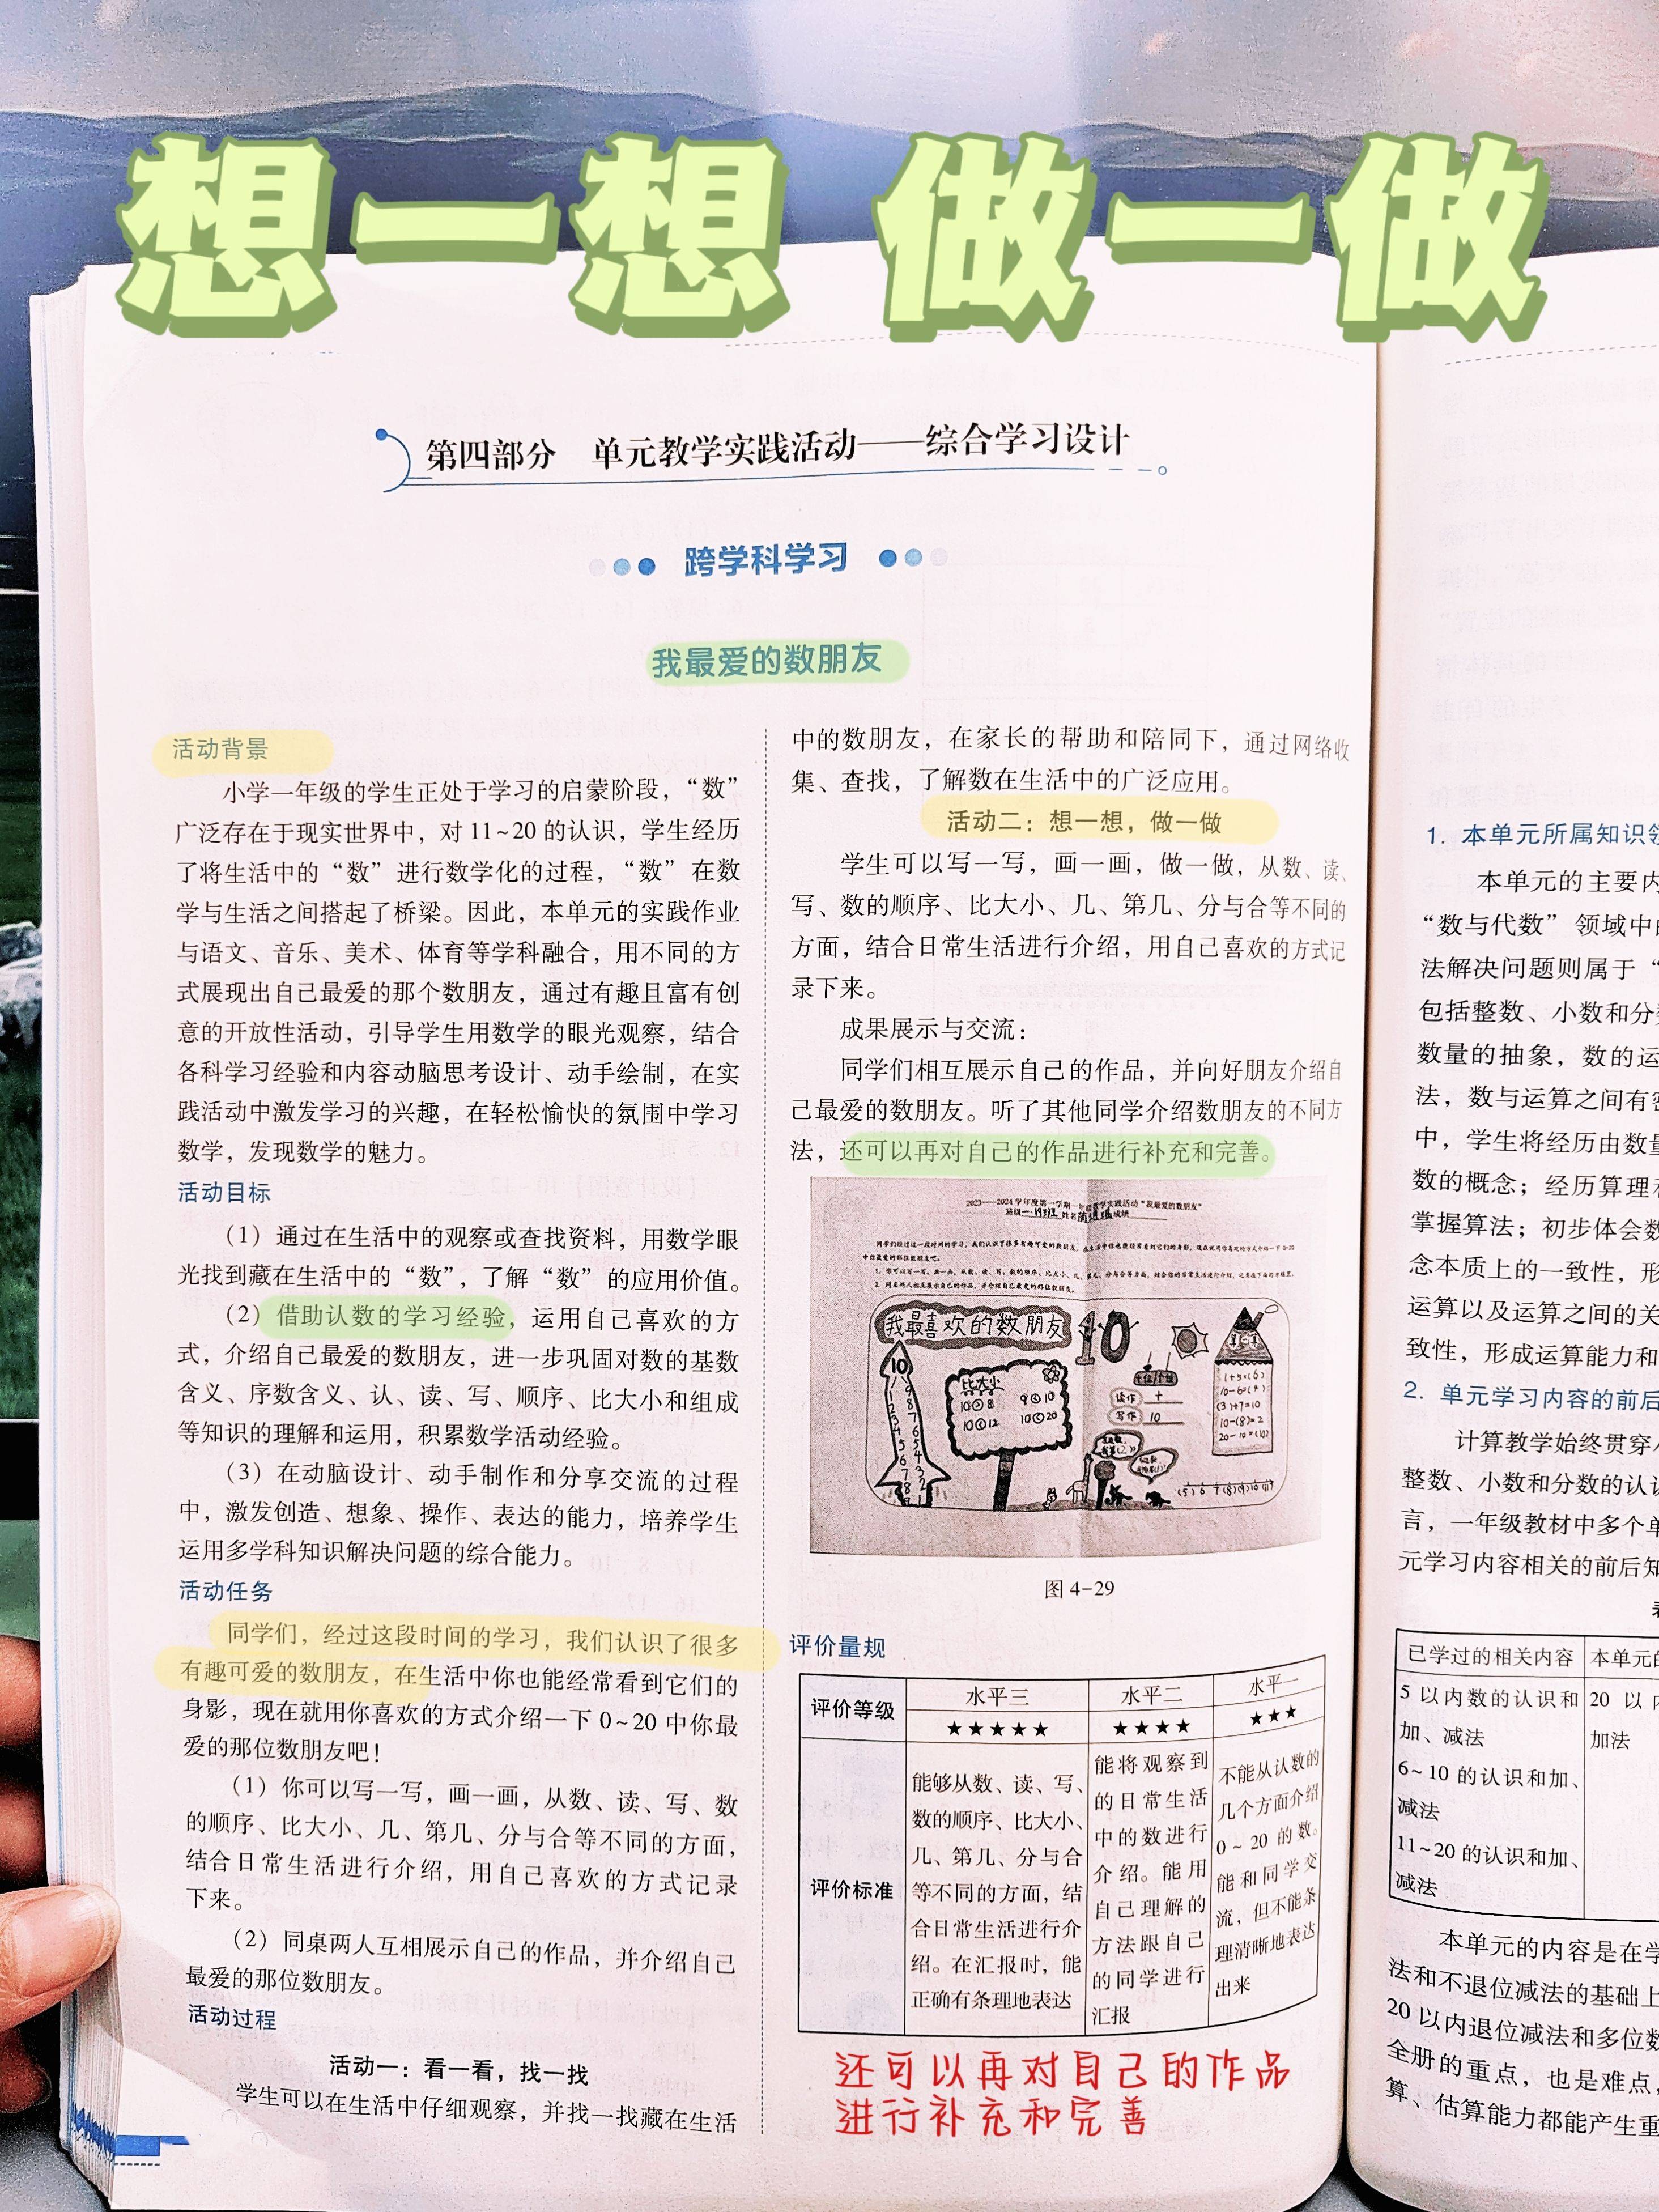 想一想 做一做
第四部分 单元教学实践活动——综合学习设计
跨学科学习
我最爱的数朋友
活动背景
小学一年级的学生正处于学习的启蒙阶段，“数”
广泛存在于现实世界中，对 11~20 的认识，学生经历
了将生活中的“数”进行数学化的过程，“数”在数
学与生活之间搭起了桥梁。因此，本单元的实践作业
与语文、音乐、美术、体育等学科融合，用不同的方
式展现出自己最爱的那个数朋友，通过有趣且富有创
意的开放性活动，引导学生用数学的眼光观察，结合
各科学习经验和内容动脑思考设计、动手绘制，在实
践活动中激发学习的兴趣，在轻松愉快的氛围中学习
数学，发现数学的魅力。
活动目标
（1）通过在生活中的观察或查找资料，用数学眼
光找到藏在生活中的“数”，了解“数”的应用价值。
（2）借助认数的学习经验，运用自己喜欢的方
式，介绍自己最爱的数朋友，进一步巩固对数的基数
含义、序数含义、认、读、写、顺序、比大小和组成
等知识的理解和运用，积累数学活动经验。
（3）在动脑设计、动手制作和分享交流的过程
中，激发创造、想象、操作、表达的能力，培养学生
运用多学科知识解决问题的综合能力。
活动任务
同学们，经过这段时间的学习，我们认识了很多
有趣可爱的数朋友，在生活中你也能经常看到它们的
身影，现在就用你喜欢的方式介绍一下 0~20 中你最
爱的那位数朋友吧！
（1）你可以写一写，画一画，从数、读、写、数
的顺序、比大小、几、第几、分与合等不同的方面，
结合日常生活进行介绍，用自己喜欢的方式记录
下来。
（2）同桌两人互相展示自己的作品，并介绍自己
最爱的那位数朋友。
活动过程
活动一：看一看，找一找
学生可以在生活中仔细观察，并找一找藏在生活
中的数朋友，在家长的帮助和陪同下，通过网络收
集、查找，了解数在生活中的广泛应用。
活动二：想一想，做一做
学生可以写一写，画一画，做一做，从数、读、
写、数的顺序、比大小、几、第几、分与合等不同的
方面，结合日常生活进行介绍，用自己喜欢的方式记
录下来。
成果展示与交流：
同学们相互展示自己的作品，并向好朋友介绍自
己最爱的数朋友。听了其他同学介绍数朋友的不同方
法，还可以再对自己的作品进行补充和完善。
2023——2024 学年度第一学期一年级数学实践活动“我最爱的数朋友”
我最喜欢的数朋友 10
比大小
读作 十
写作 10
图 4-29
评价量规
评价等级 水平三 水平二 水平一
★★★★★ ★★★★ ★★★
评价标准
能够从数、读、写、
数的顺序、比大小、
几、第几、分与合
等不同的方面，结
合日常生活进行介
绍。在汇报时，能
正确有条理地表达
能将观察到
的日常生活
中的数进行
介绍。能用
自己理解的
方法跟自己
的同学进行
汇报
不能从认数的
几个方面介绍
0~20 的数。
能和同学交
流，但不能条
理清晰地表达
出来
还可以再对自己的作品
进行补充和完善
1. 本单元所属知识领
本单元的主要内
“数与代数”领域中的
法解决问题则属于“
包括整数、小数和分
数量的抽象，数的运
法，数与运算之间有
中，学生将经历由数量
数的概念；经历算理和
掌握算法；初步体会数
念本质上的一致性，形
运算以及运算之间的关
致性，形成运算能力和
2. 单元学习内容的前后
计算教学始终贯穿
整数、小数和分数的认识
言，一年级教材中多个单
元学习内容相关的前后知
已学过的相关内容 本单元的
5 以内数的认识和
加、减法
6~10 的认识和加、
减法
11~20 的认识和加、
减法
20 以内
加法
本单元的内容是在学
法和不退位减法的基础上
20 以内退位减法和多位数
全册的重点，也是难点，
算、估算能力都能产生重